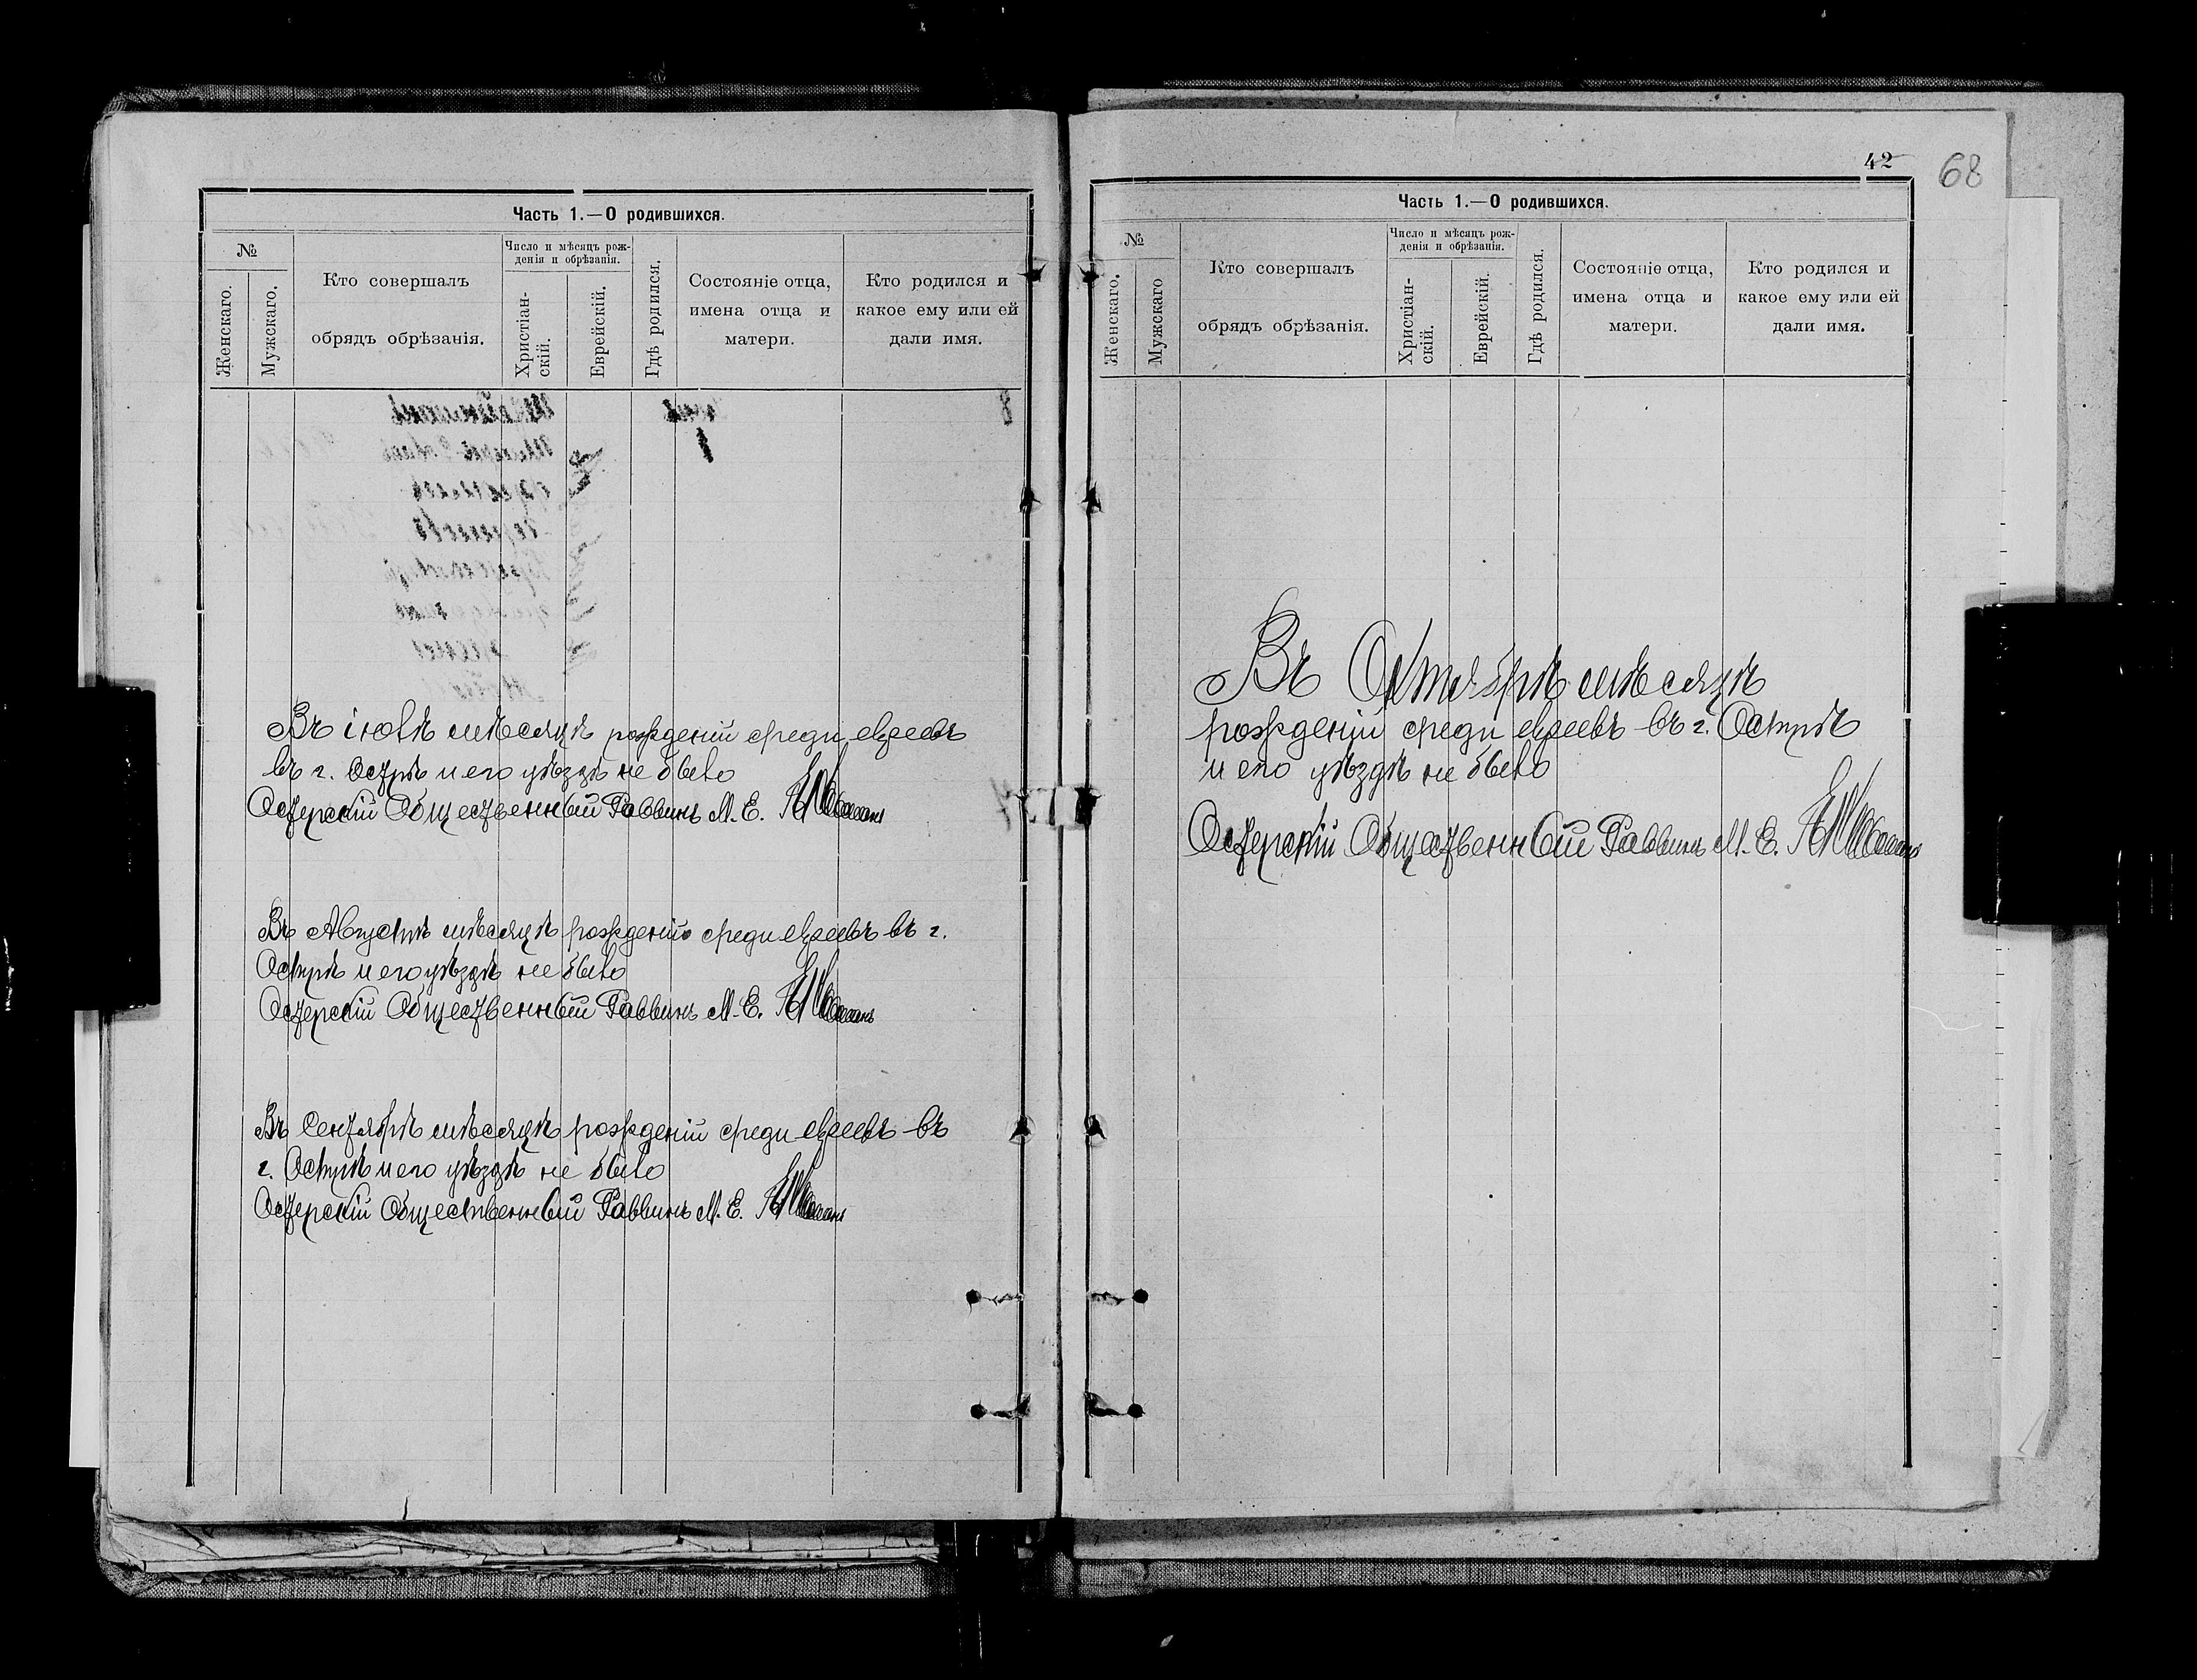 Часть 1.—О родившихся.
№
Женскаго.
Мужскаго.
Кто совершалъ
обрядъ обрѣзанія.
Число и мѣсяцъ рож-
денія и обрѣзанія.
Христіан-
скій.
Еврейскій.
Гдѣ родился.
Состояніе отца,
имена отца и
матери.
Кто родился и
какое ему или ей
дали имя.
Въ іюлѣ мѣсяцѣ рожденій среди евреевъ
въ г. Острѣ и его уѣздѣ не было
Остерскій Общественный Раввинъ М. Е.
Въ Августѣ мѣсяцѣ рожденій среди евреевъ въ г.
Острѣ и его уѣздѣ не было
Остерскій Общественный Раввинъ М. Е.
Въ Сентябрѣ мѣсяцѣ рожденій среди евреевъ въ
г. Острѣ и его уѣздѣ не было
Остерскій Общественный Раввинъ М. Е.
42
68
Часть 1.—О родившихся.
№
Женскаго.
Мужскаго
Кто совершалъ
обрядъ обрѣзанія.
Число и мѣсяцъ рож-
денія и обрѣзанія.
Христіан-
скій.
Еврейскій.
Гдѣ родился.
Состояніе отца,
имена отца и
матери.
Кто родился и
какое ему или ей
дали имя.
Въ Октябрѣ мѣсяцѣ
рожденій среди евреевъ въ г. Острѣ
и его уѣздѣ не было
Остерскій Общественный Раввинъ М. Е.